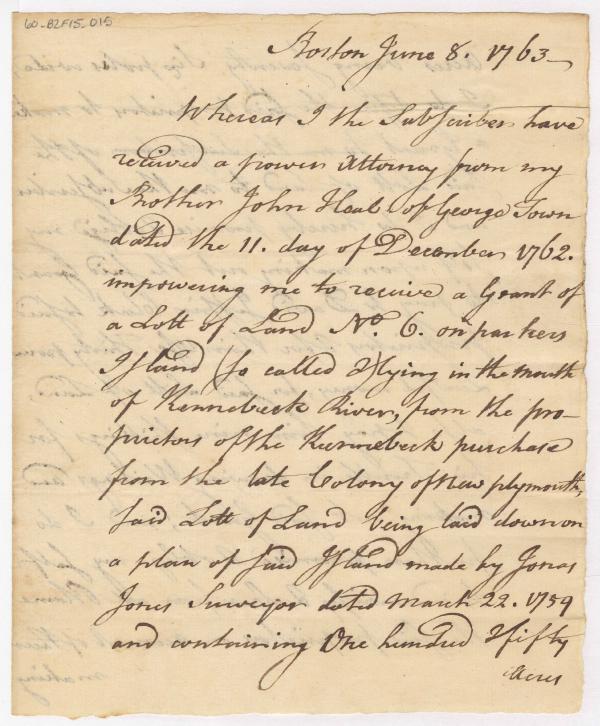 60-B2F15-015
Boston June 8. 1763
Whereas I the Subscriber have
received a power Attorney from my
Brother John Heal of George Town
dated the 11. day of December 1762.
impowering me to receive a Grant of
a Lott of Land No. 6. on parkers
Island (so called) lying in the mouth
of Kennebeck River, from the pro-
prietors of the Kennebeck purchase
from the late Colony of New plymouth,
said Lott of Land being laid down on
a plan of said Island made by Jonas
Jones Surveyor dated March 22. 1759
and containing One hundred & fifty
Acres